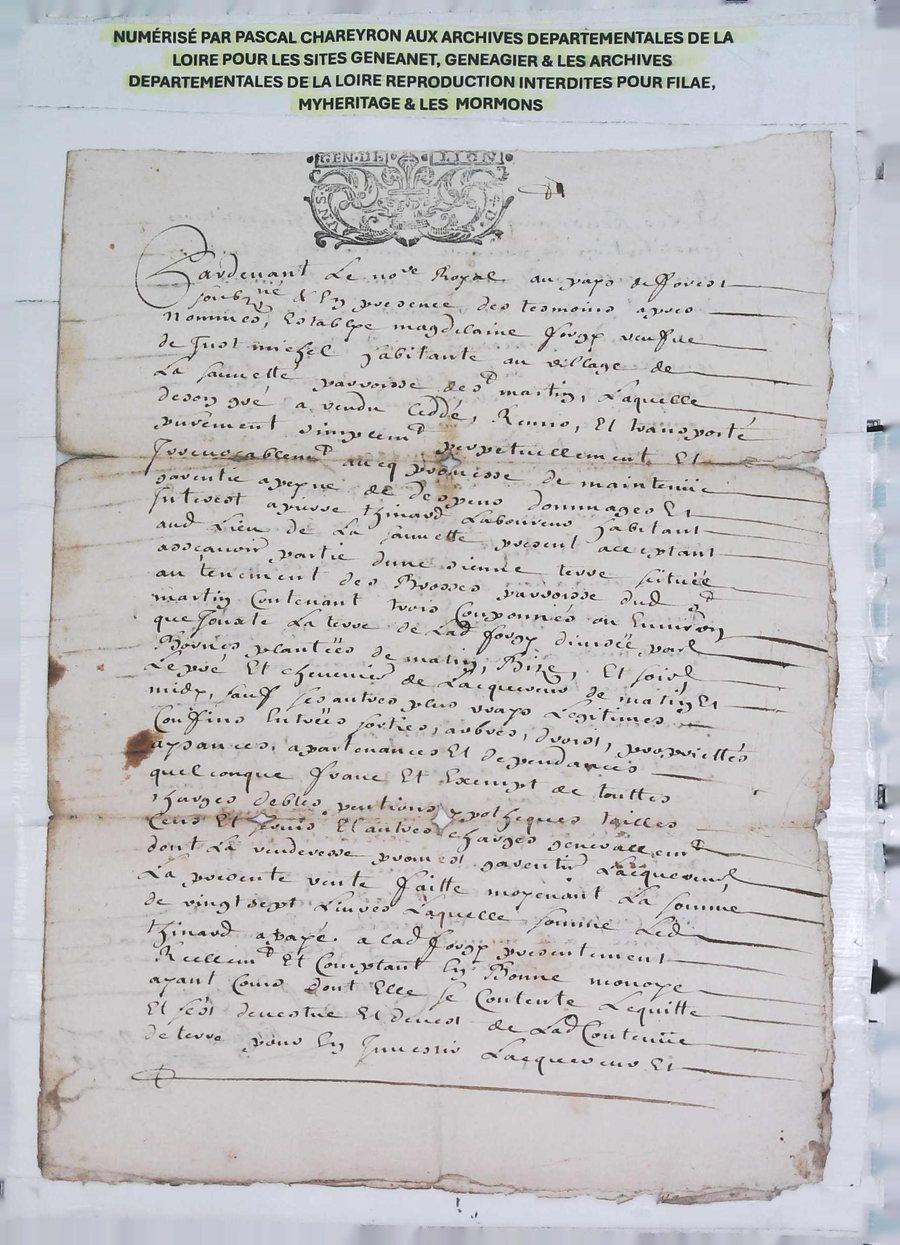 NUMÉRISÉ PAR PASCAL CHAREYRON AUX ARCHIVES DEPARTEMENTALES DE LA
LOIRE POUR LES SITES GENEANET, GENEAGIER & LES ARCHIVES
DEPARTEMENTALES DE LA LOIRE REPRODUCTION INTERDITES POUR FILAE,
MYHERITAGE & LES MORMONS
GEN·DE LYON
VN·S· 4·D·
Pardevant Le no.re Royal au pays de fforest
soubz.né & En presence des tesmoins apres
Nommés, Establye magdelaine forgy veufve
de Just michel habitante au village de
La sauvette parroisse de st martin, Laquelle
de son gré a vendu Ceddé, Remis, Et transporté
purement simplemt perpetuellement Et
Irrevocablemt avecq promesse de maintenüe
garentie a peyne de despens dommages Et
Interest a pierre thinard Laboureur habitant
aud Lieu de La sauvette present acceptant
assçavoir partie d'une sienne terre scituée
au tenement des Brosses parroisse dud st
martin Contenant trois Couponnées ou Environ
que Joucte La terre de Lad forgy divisée par
Bornes plantées de matin, Bize, Et soir
Le pré Et chenevier de Lacquereur de matin Et
midy, sauf ses autres plus vrays Legitimes
Confins Entrées sorties, arbres, droist, proprietés
aysances, apartenances Et dependances
quelconque franc Et Exempt de touttes
charges debtes pentions ypotheques tailles
Cens Et Et autres charges generallemt
dont La venderesse promest garentir Lacquereur
La presente vente faitte moyenant La somme
de vingt sept Livres Laquelle somme Led
thinard a payé a Lad forgy presentement
Reellemt Et Comptant En Bonne monoye
ayant Cours dont Elle se Contente Lequitte
Et sest devestue Et devest de Lad Contenüe
de terre pour En Investir Lacquereur Et